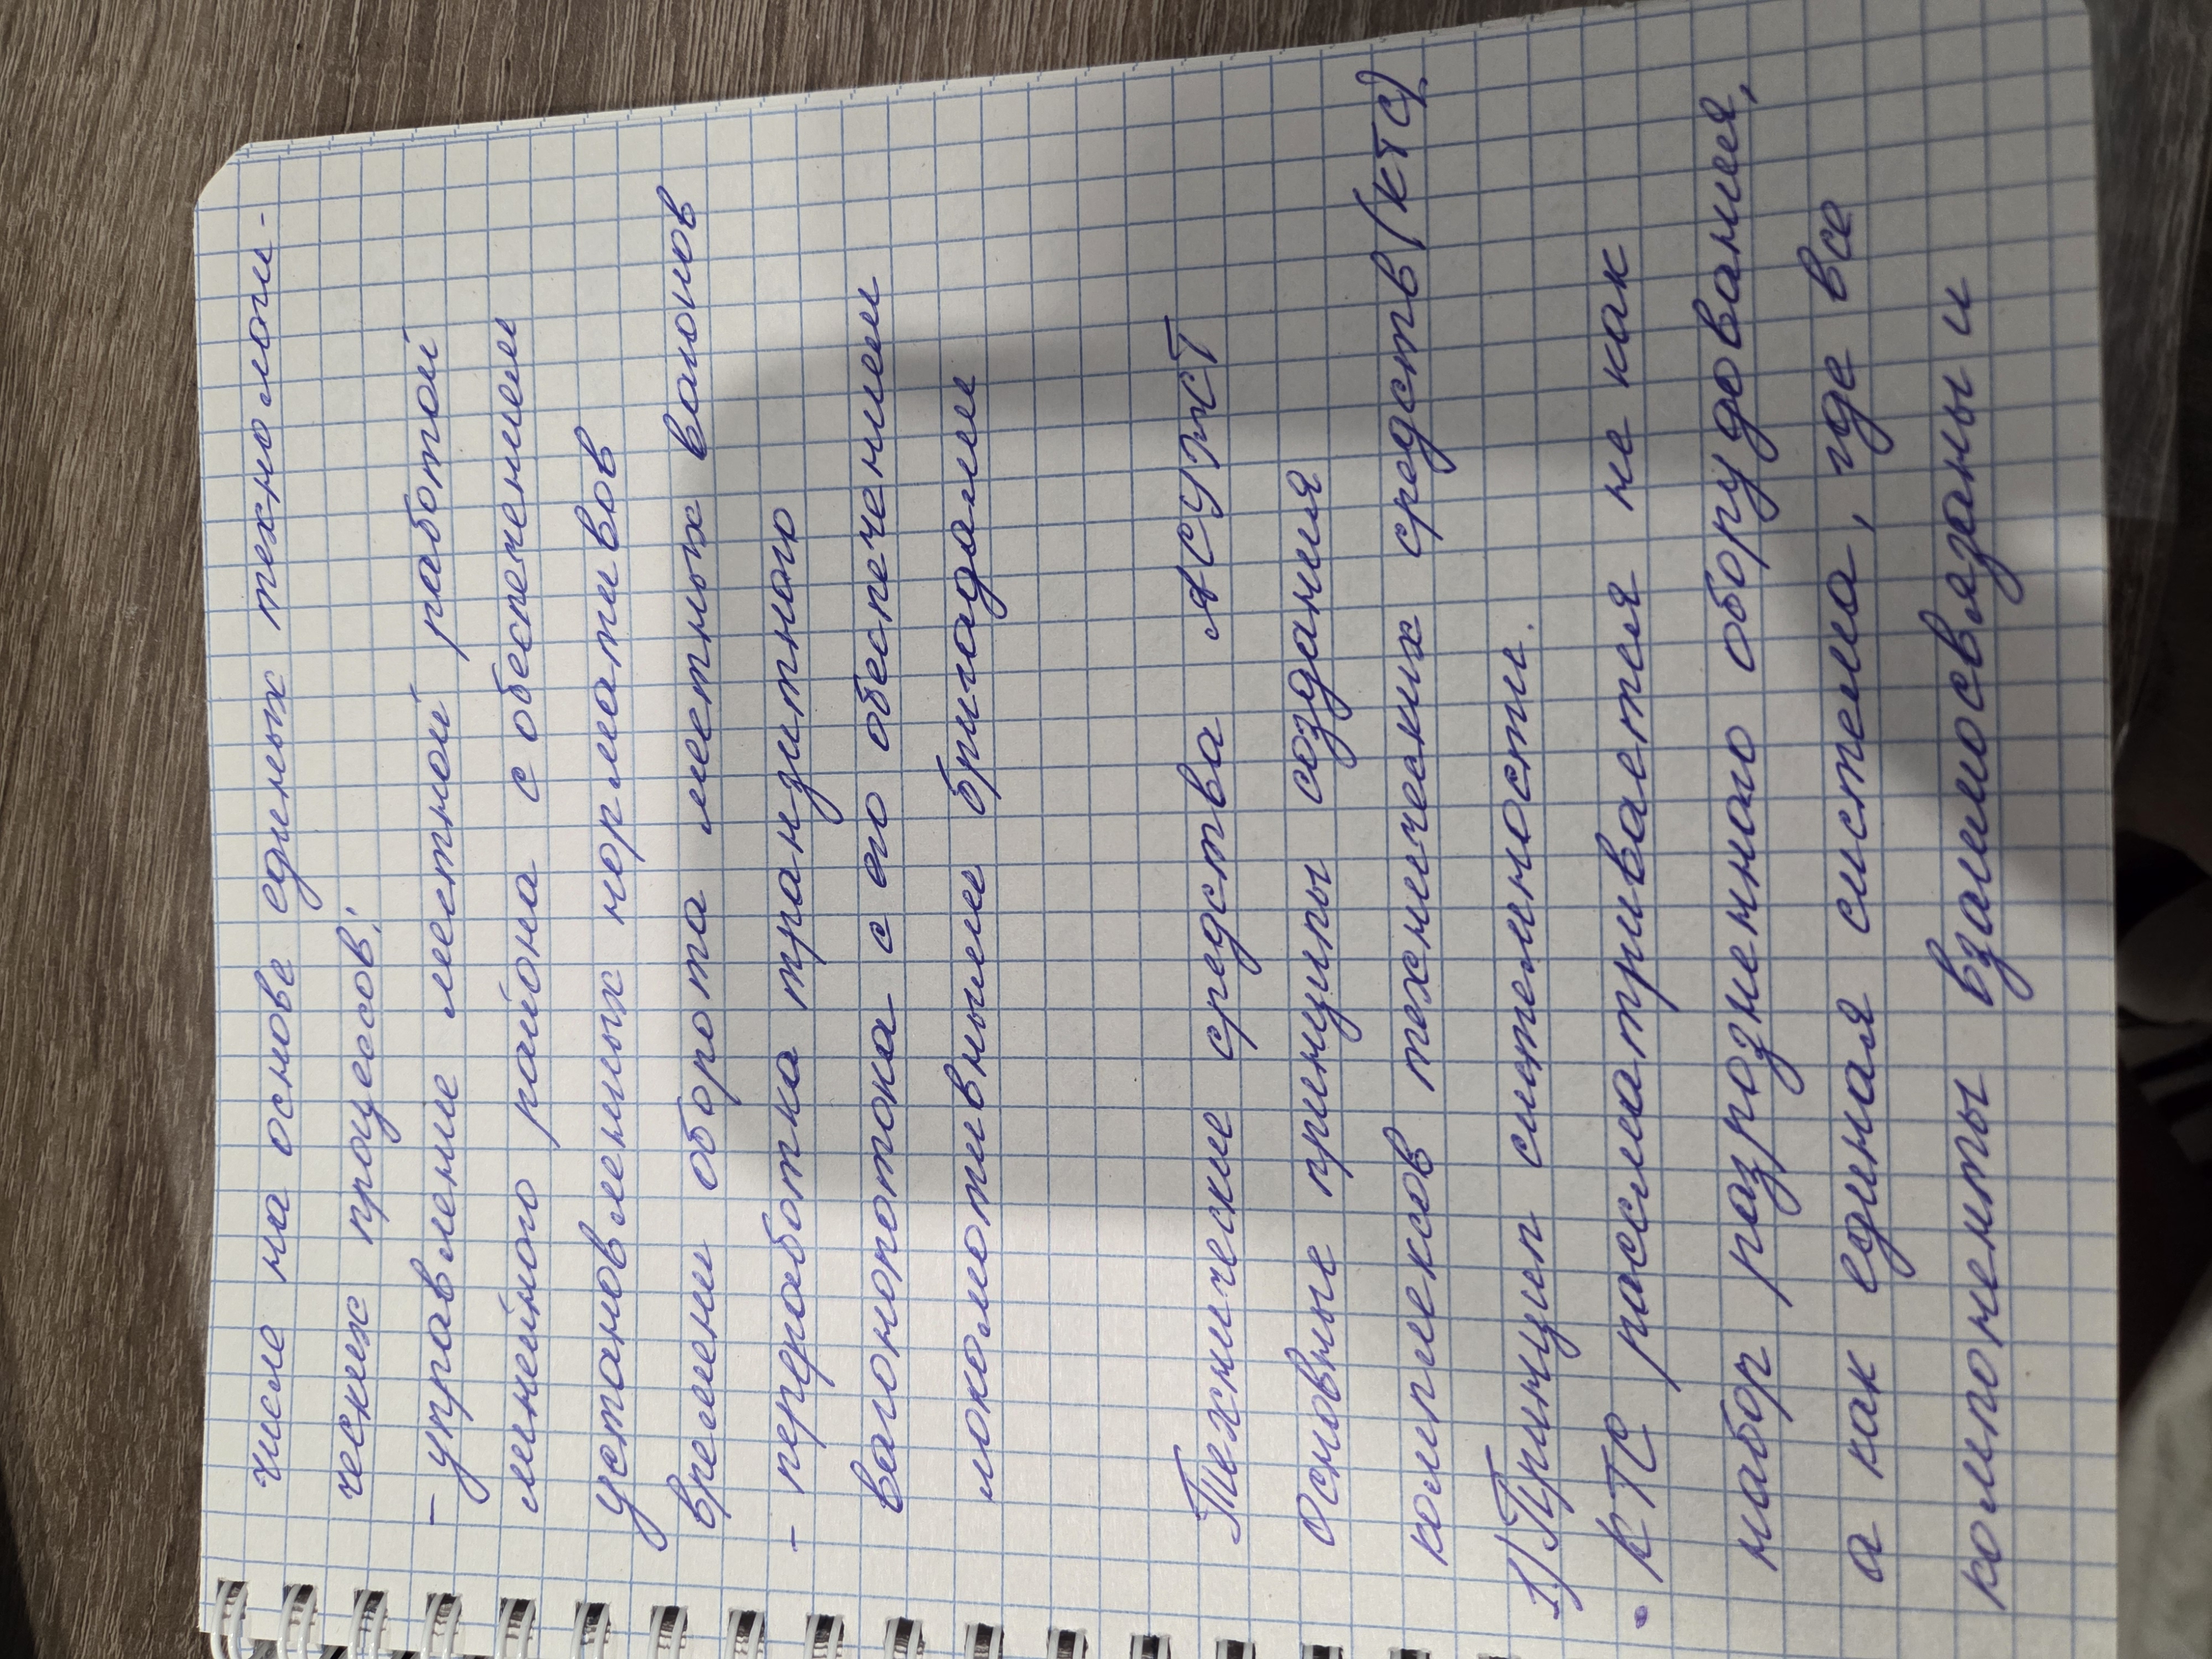 числе на основе единых технологи-
ческих процессов;
- управление местной работой
линейного района с обеспечением
установленных нормативов
времени оборота местных вагонов
- переработка транзитного
вагонопотока с его обеспечением
локомотивными бригадами
Технические средства АСУЖТ
Основные принципы создания
комплексов технических средств (КТС)
1) Принцип системности.
• КТС рассматривается не как
набор разрозненного оборудования,
а как единая система, где все
компоненты взаимосвязаны и